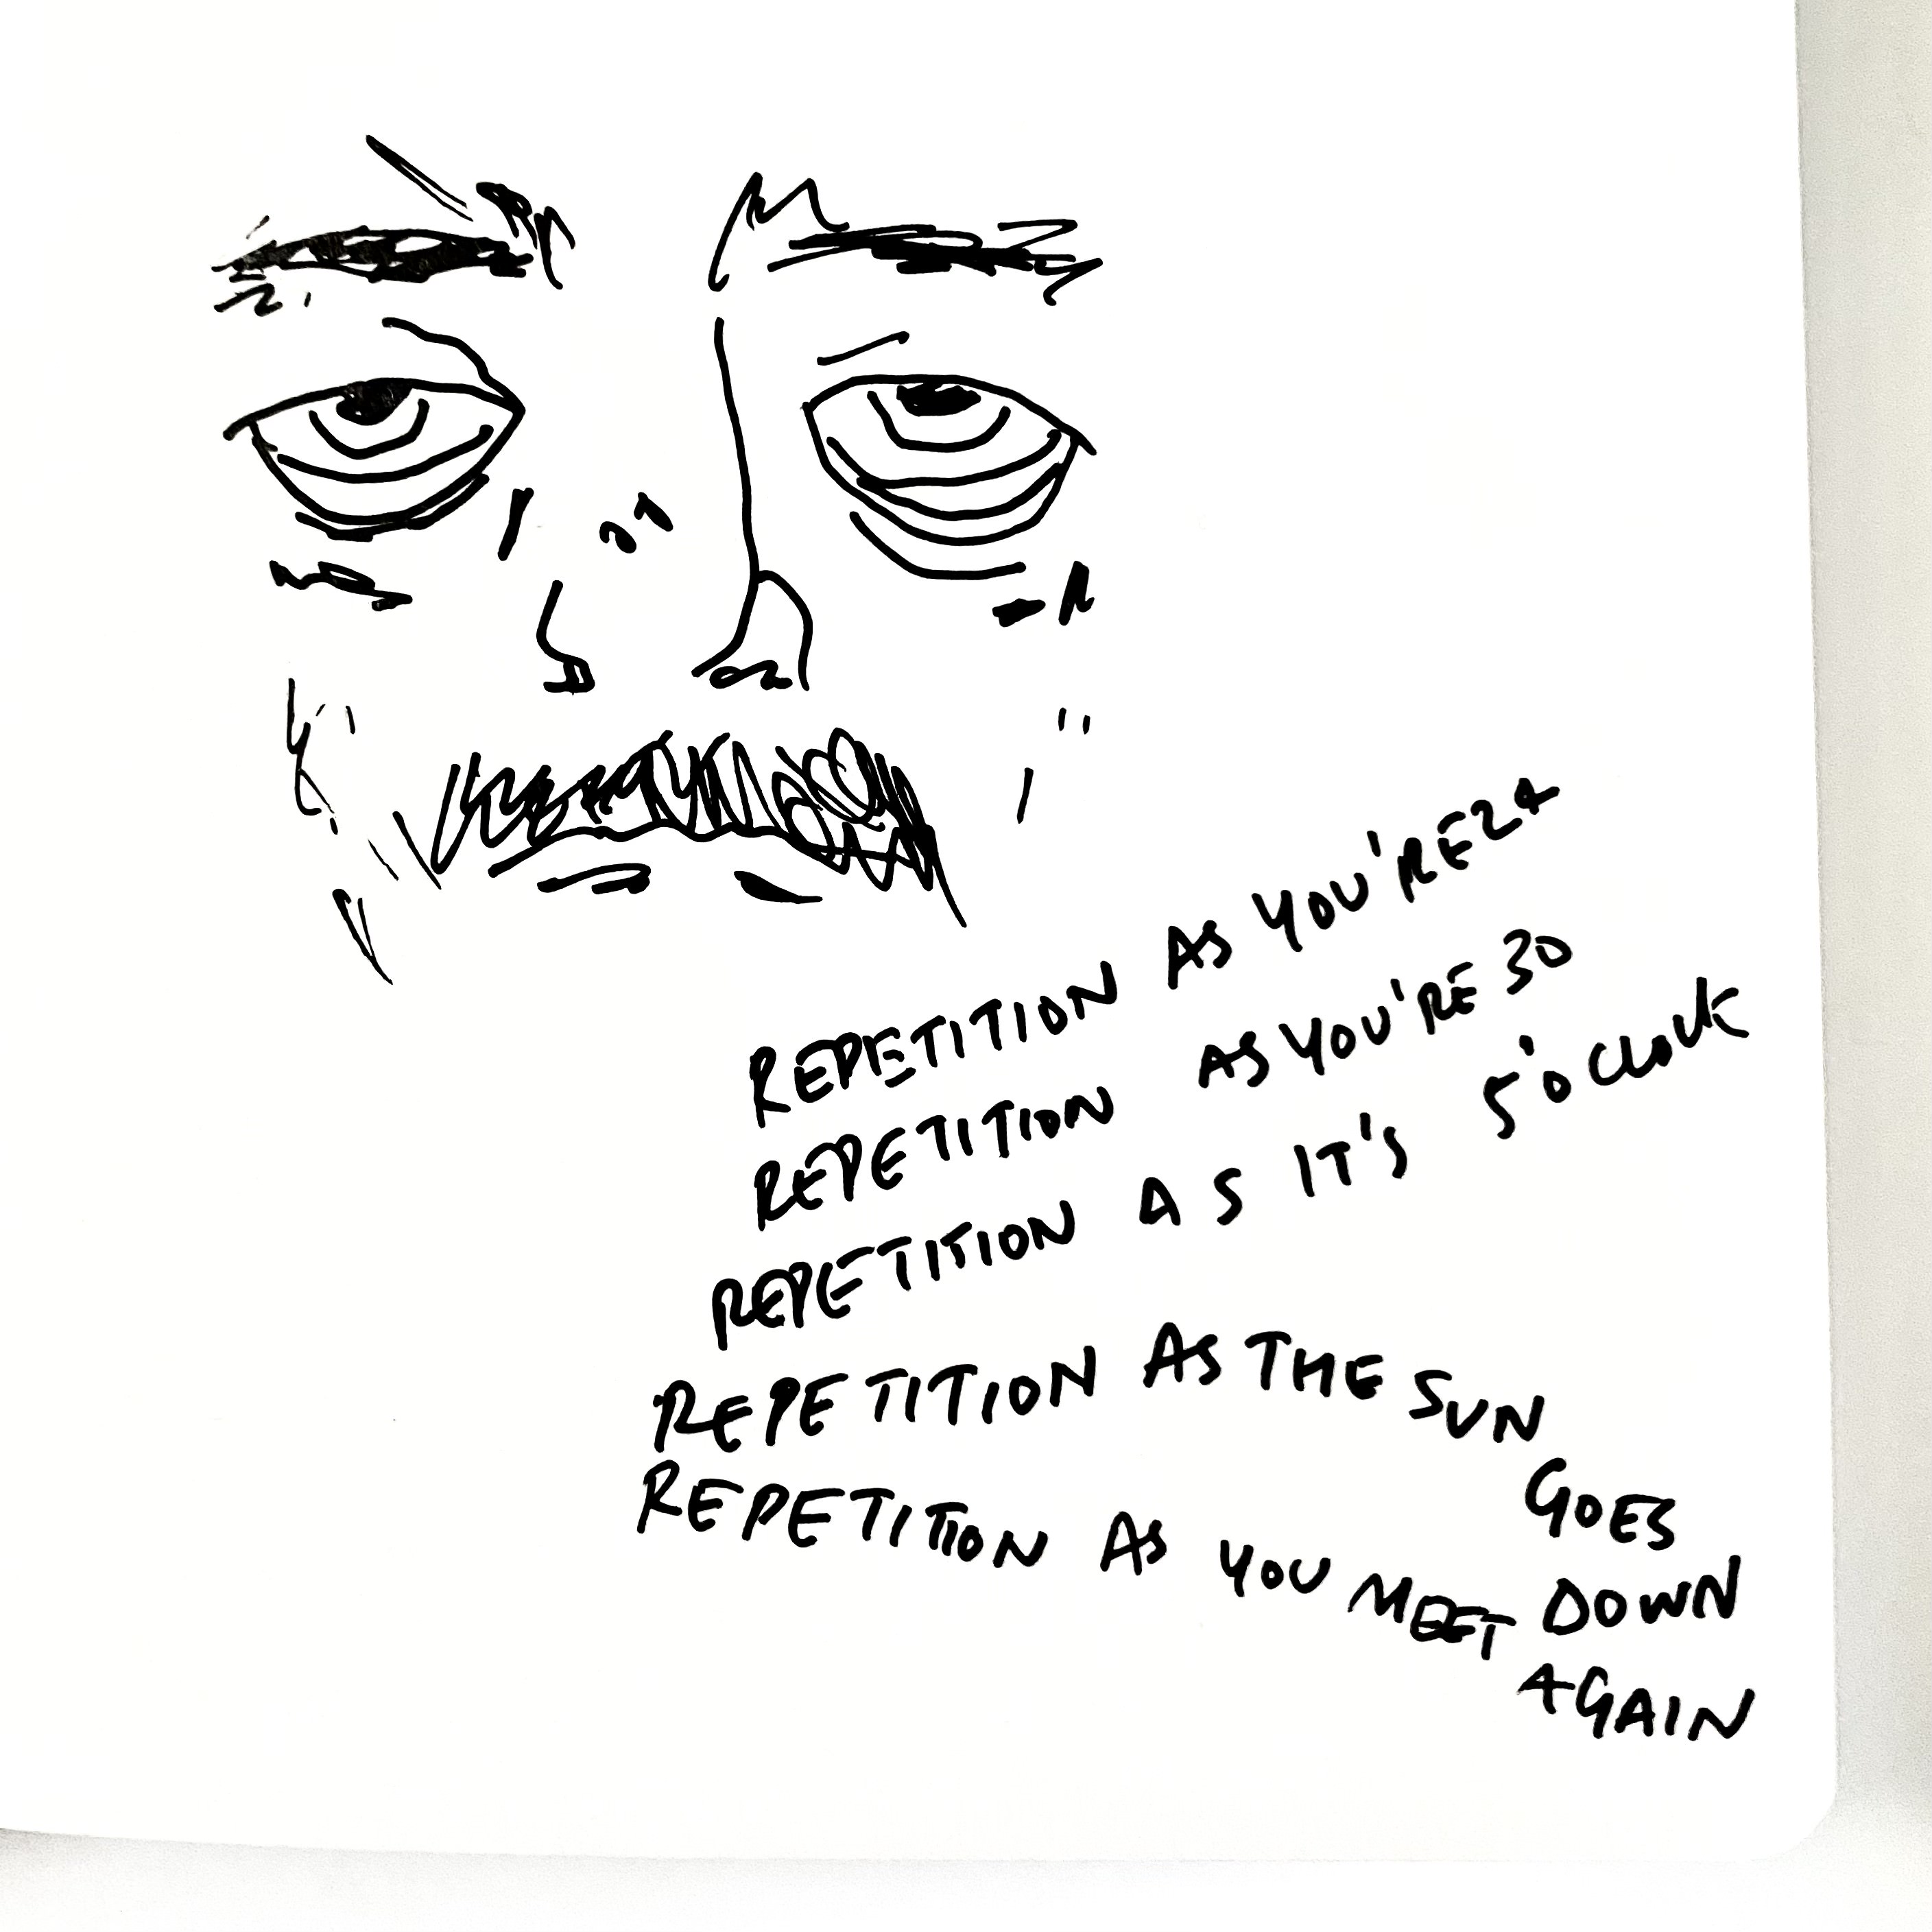 REPETITION AS YOU'RE 24
REPETITION AS YOU'RE 30
REPETITION AS IT'S 5'O CLOCK
REPETITION AS THE SUN
GOES
DOWN
REPETITION AS YOU MEET
AGAIN